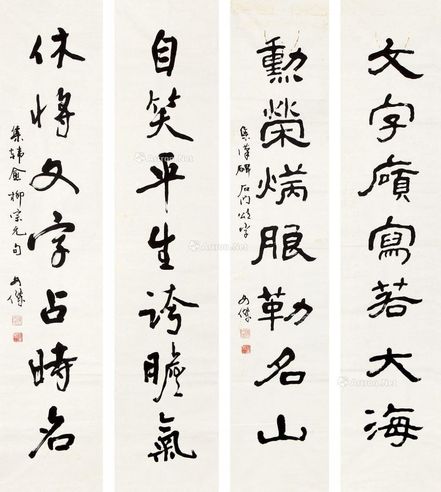 文字寫若大海
勳榮勒名山
集漢碑石門頌字
自笑平生誇膽氣
休將文字占時名
集韓愈柳宗元句
Artron.Net